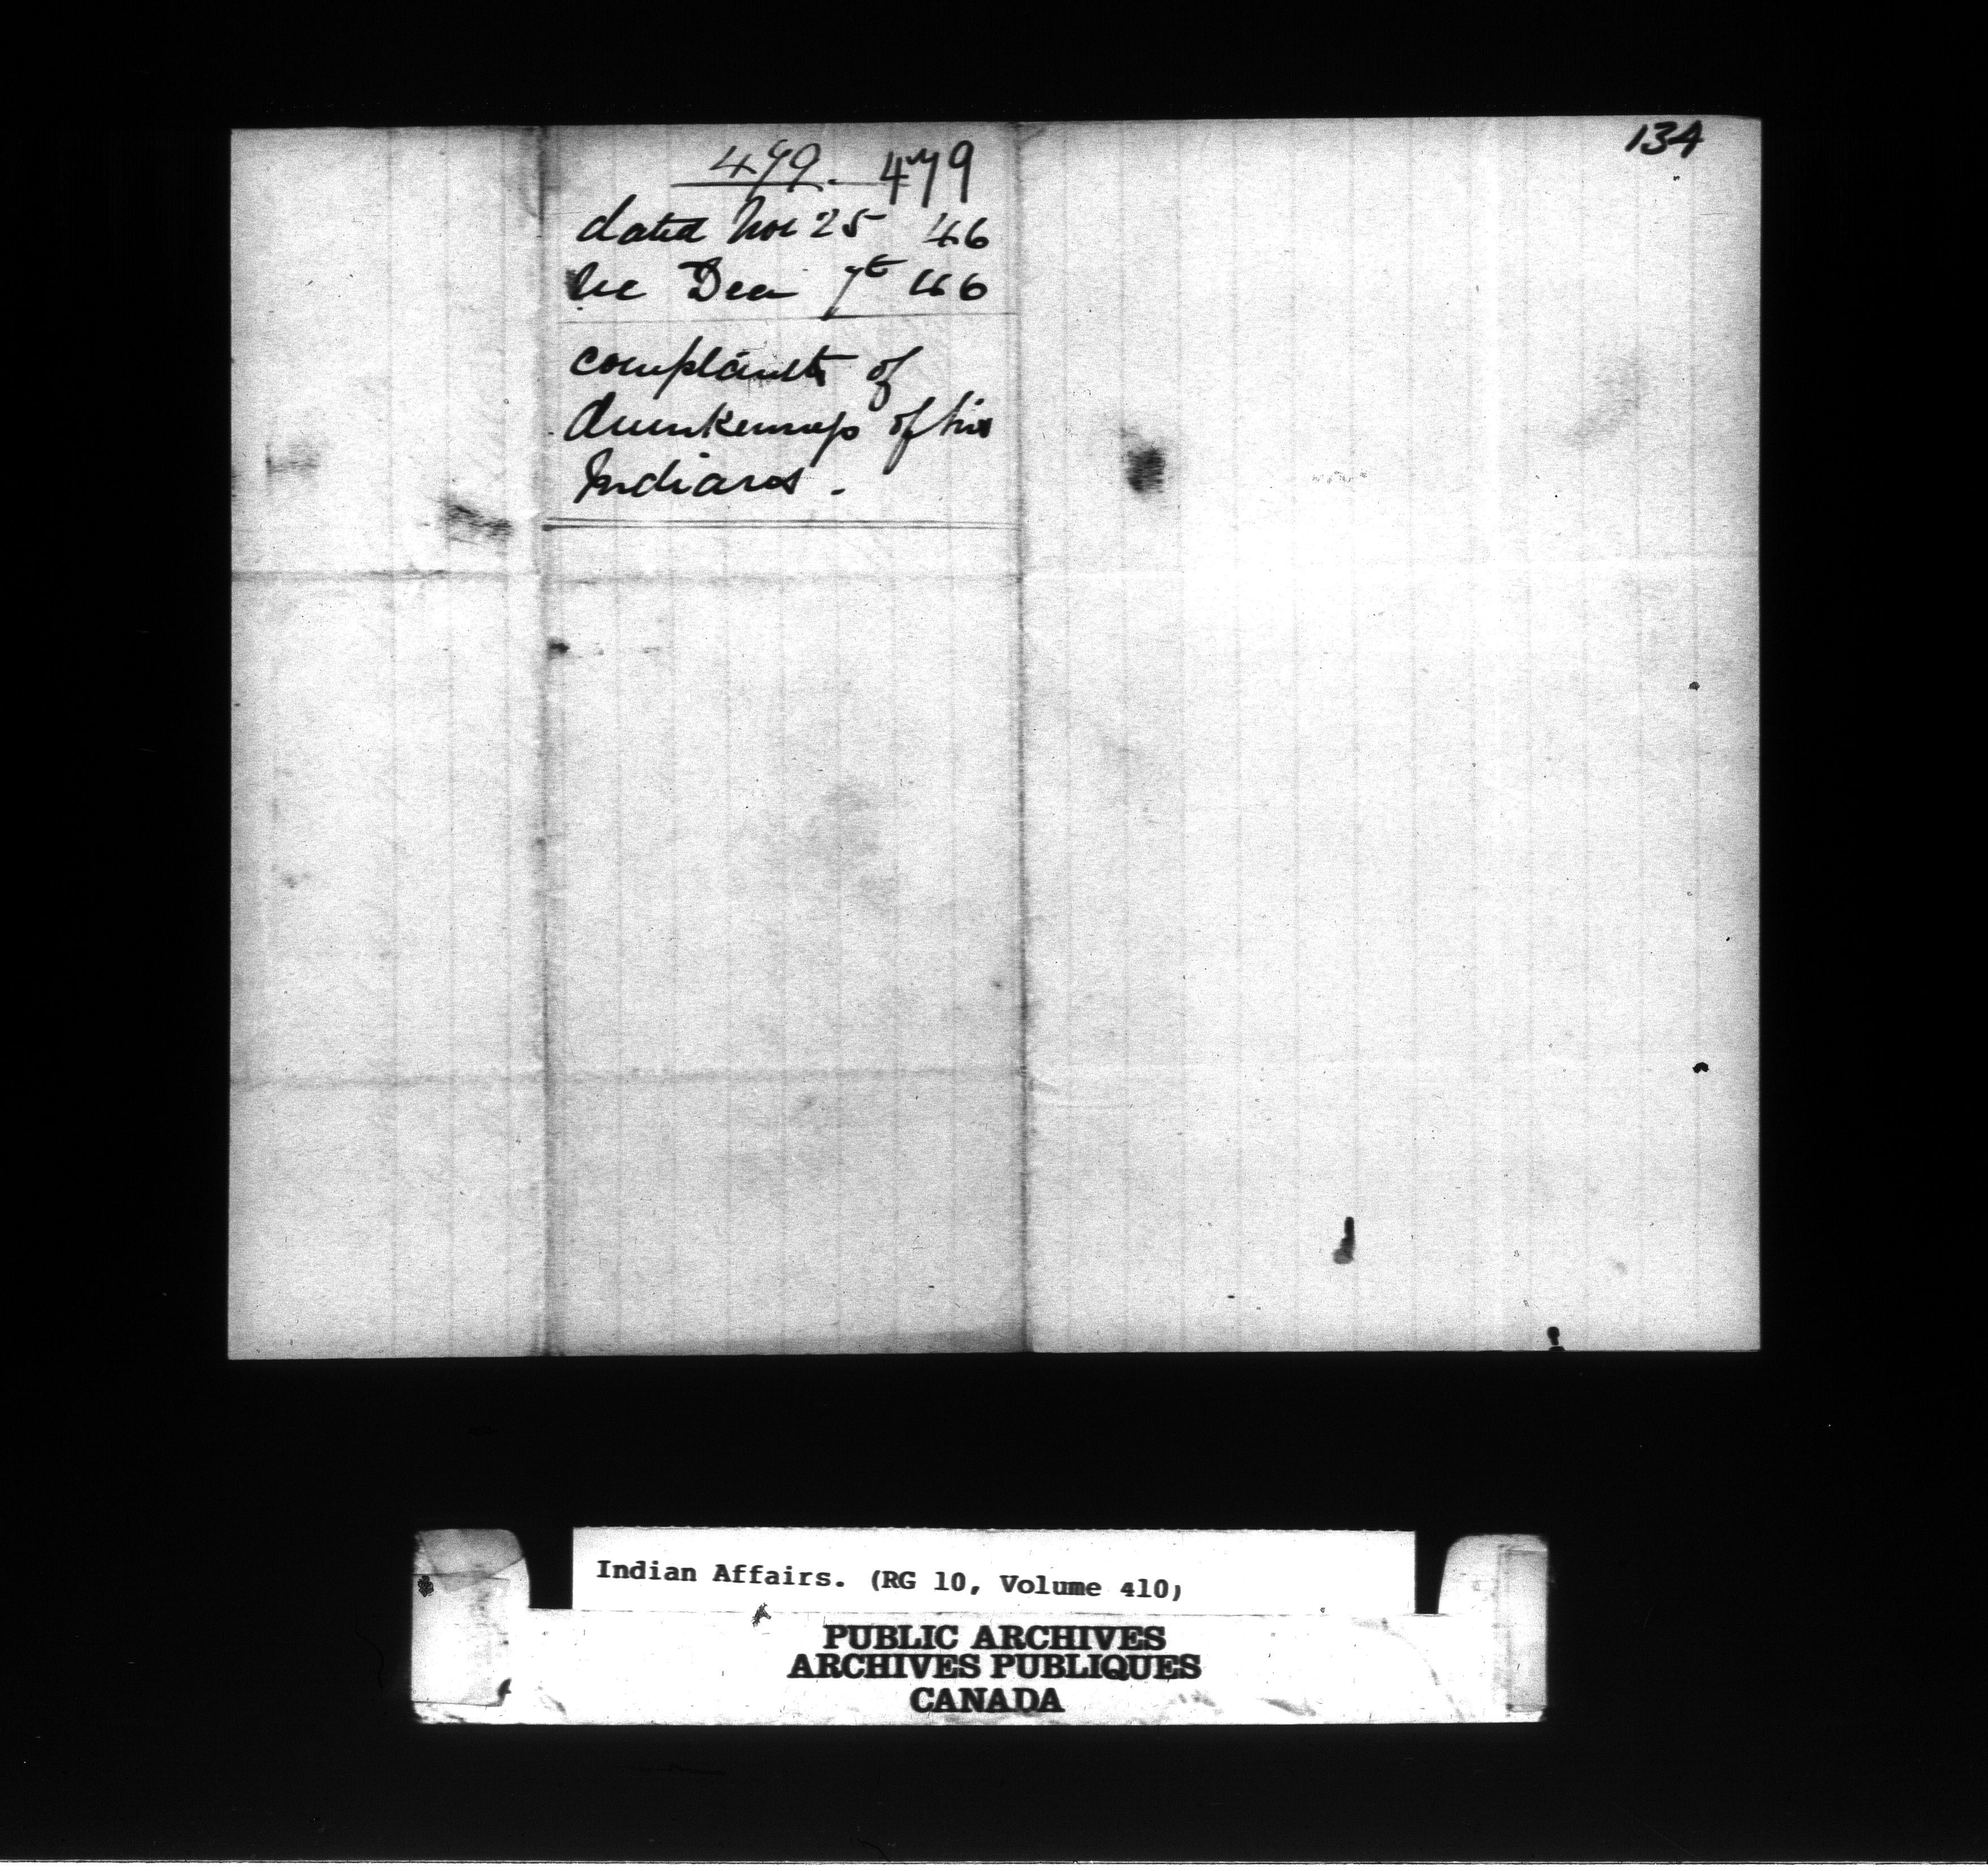 134
479. 479
dated Nov 25 46
Rec Decr 7t 46
complaints of
drunkenness of his
Indians.
Indian Affairs. (RG 10, Volume 410)
PUBLIC ARCHIVES
ARCHIVES PUBLIQUES
CANADA